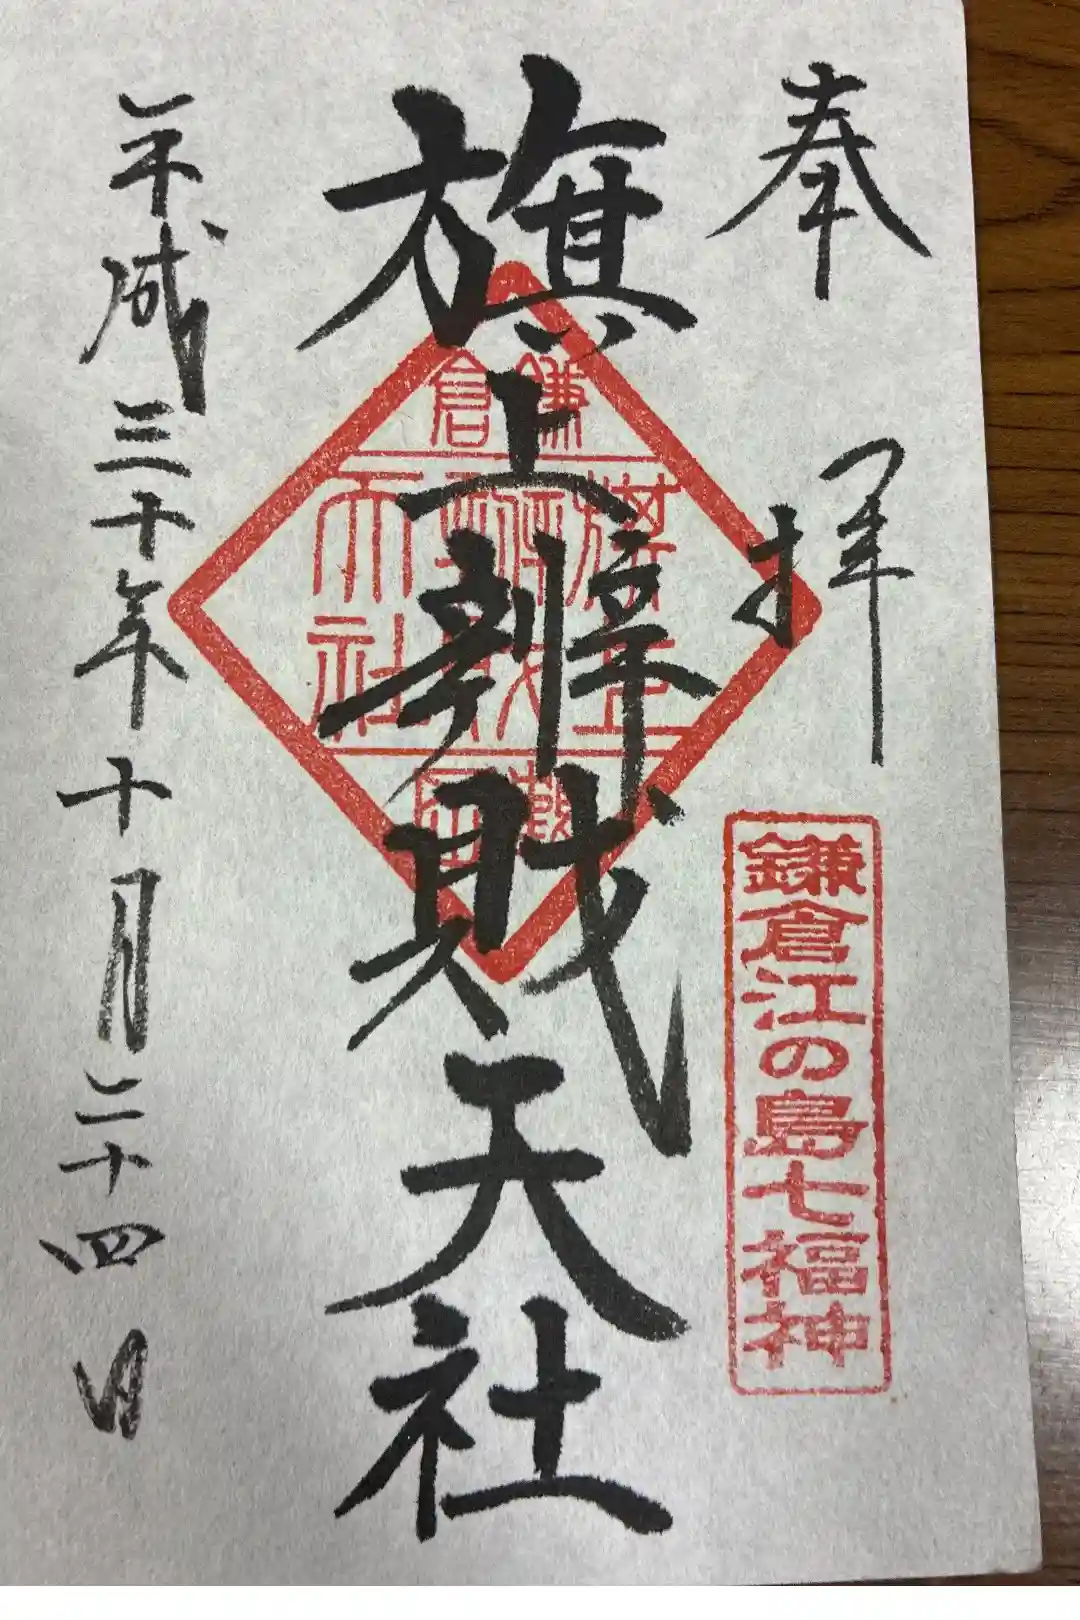 奉拝
鎌倉江の島七福神
旗上辨財天社
鎌倉
旗上
辨財
天社
平成三十年十月二十四日